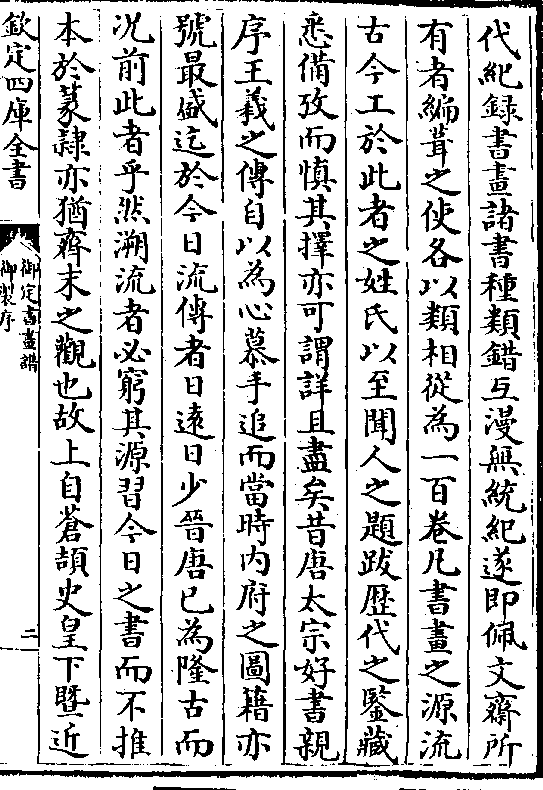 代紀録書畫諸書種類錯互漫無統紀遂即佩文齋所
有者編葺之使各以類相從為一百卷凡書畫之源流
古今工於此者之姓氏以至聞人之題跋歴代之鑒藏
悉備攷而慎其擇亦可謂詳且盡矣昔唐太宗好書親
序王羲之傳自以為心慕手追而當時内府之圖籍亦
號最盛迄於今日流傳者日遠日少晉唐已為隆古而
况前此者乎然溯流者必窮其源習今日之書而不推
本於篆隸亦猶齊末之觀也故上自蒼頡史皇下暨近
欽定四庫全書
御定書畫譜
御製序
二